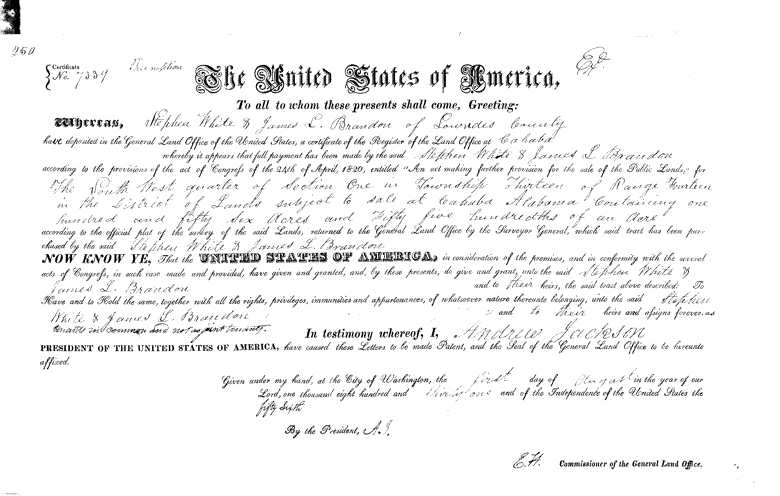 250
Certificate
No. 7339
Preemption
Ex'd.
The United States of America,
To all to whom these presents shall come, Greeting:
Whereas, Stephen White & James L. Brandon of Lowndes County
have deposited in the General Land Office of the United States, a certificate of the Register of the Land Office at Cahaba
whereby it appears that full payment has been made by the said Stephen White & James L Brandon
according to the provisions of the act of Congress of the 24th of April, 1820, entitled "An act making further provision for the sale of the Public Lands," for
The South West quarter of Section One in Township Thirteen of Range Fourteen
in the District of Lands subject to sale at Cahaba Alabama Containing one
hundred and fifty six Acres and Fifty five hundredths of an Acre
according to the official plat of the survey of the said Lands, returned to the General Land Office by the Surveyor General, which said tract has been pur-
chased by the said Stephen White & James L. Brandon
NOW KNOW YE, That the UNITED STATES OF AMERICA, in consideration of the premises, and in conformity with the several
acts of Congress, in such case made and provided, have given and granted, and, by these presents, do give and grant, unto the said Stephen White &
James L. Brandon and to their heirs, the said tract above described: To
Have and to Hold the same, together with all the rights, privileges, immunities and appurtenances, of whatsoever nature thereunto belonging, unto the said Stephen
White & James L. Brandon and to their heirs and assigns forever. as
tenants in common and not as joint tenants.
In testimony whereof, I, Andrew Jackson
PRESIDENT OF THE UNITED STATES OF AMERICA, have caused these Letters to be made Patent, and the Seal of the General Land Office to be hereunto
affixed.
Given under my hand, at the City of Washington, the first day of August in the year of our
Lord, one thousand eight hundred and thirty one and of the Independence of the United States the
fifty sixth
By the President, A.J.
E.H. Commissioner of the General Land Office.